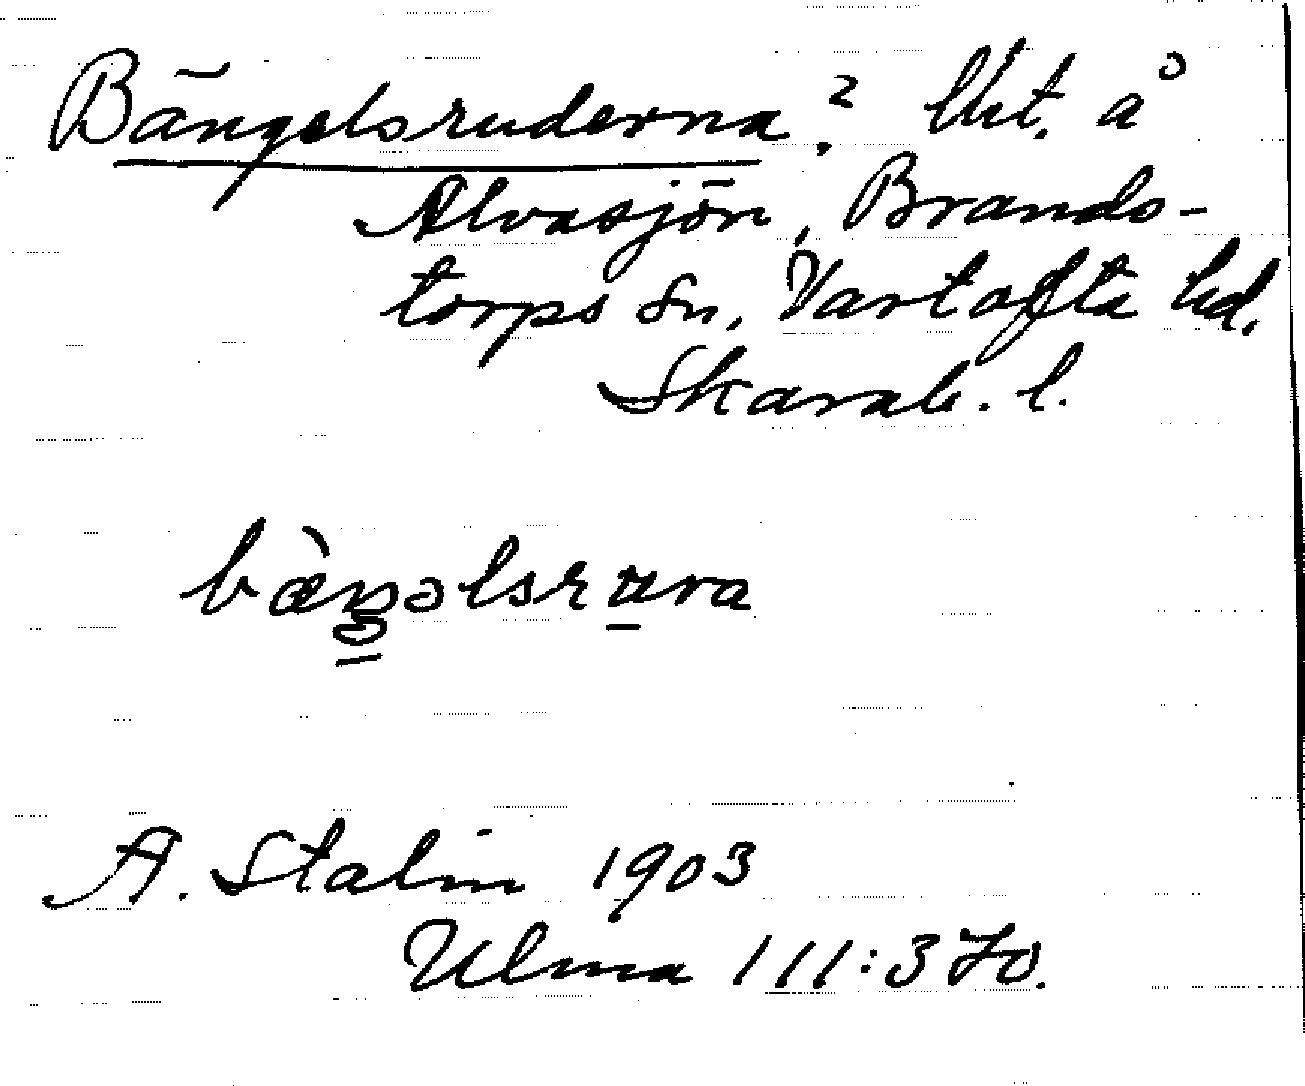 Bängelsruderna? Uit. å
Alvasjön, Brands-
torps sn, Vartofta hd.
Skarab. l.
bæ̀ŋəlsrura
A. Stalin 1903
Ulma 111:370.